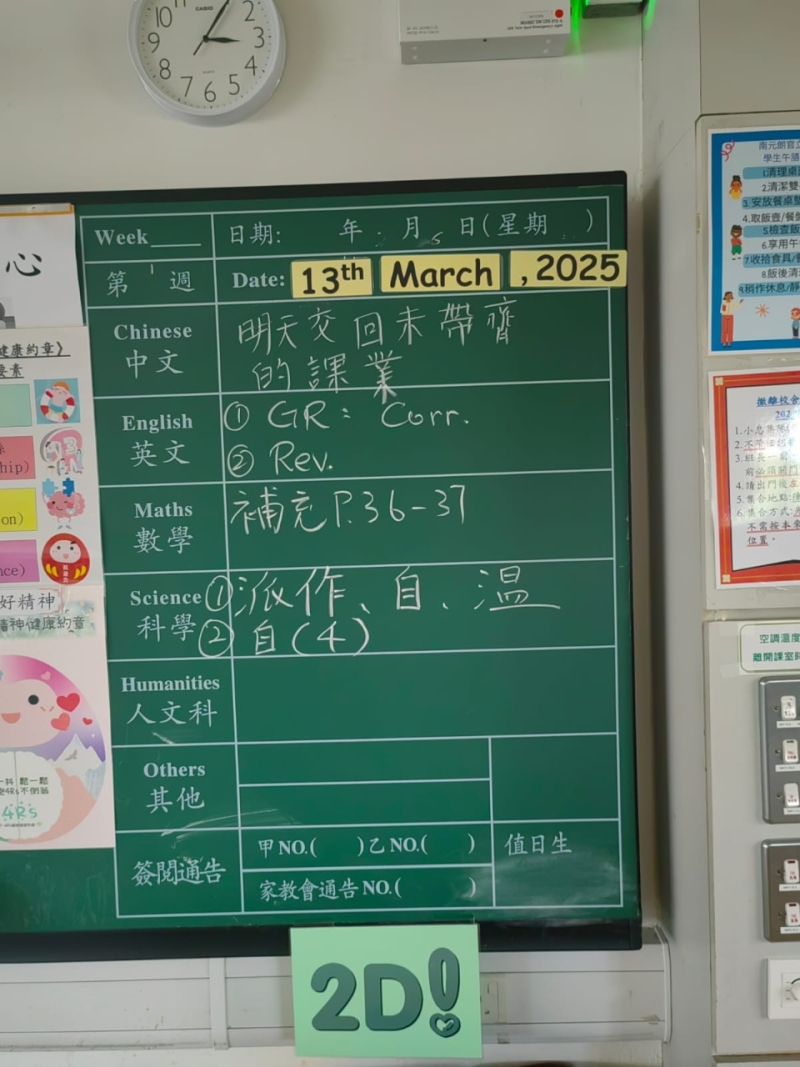 10 11 2 3 4 5 6 7 8
CASIO
心
Week____ 日期: 年 月 日(星期 )
第 週 Date: 13th March , 2025
Chinese 中文
明天交回未帶齊
的課業
English 英文
① GR: Corr.
② Rev.
Maths 數學
補充P.36-37
Science 科學
①派作、自、溫
②自(4)
Humanities
人文科
Others
其他
簽閱通告
甲NO.( )乙NO.( )
家教會通告NO.( )
值日生
2D!
健康約章》
要素
hip)
on)
nce)
好精神
精神健康約章
4R's
南元朗官立
學生午膳
1.清理桌
2.清潔雙
3.安放餐桌墊
4.取飯壺/餐
5.檢查飯
6.享用午
7.收拾食具/
8.飯後清
9.稍作休息/靜
1.小息
前必須關門
4.請出門後
5.集合地點:
6.集合方式:
不需按本
位置。
空調溫度
離開課室時